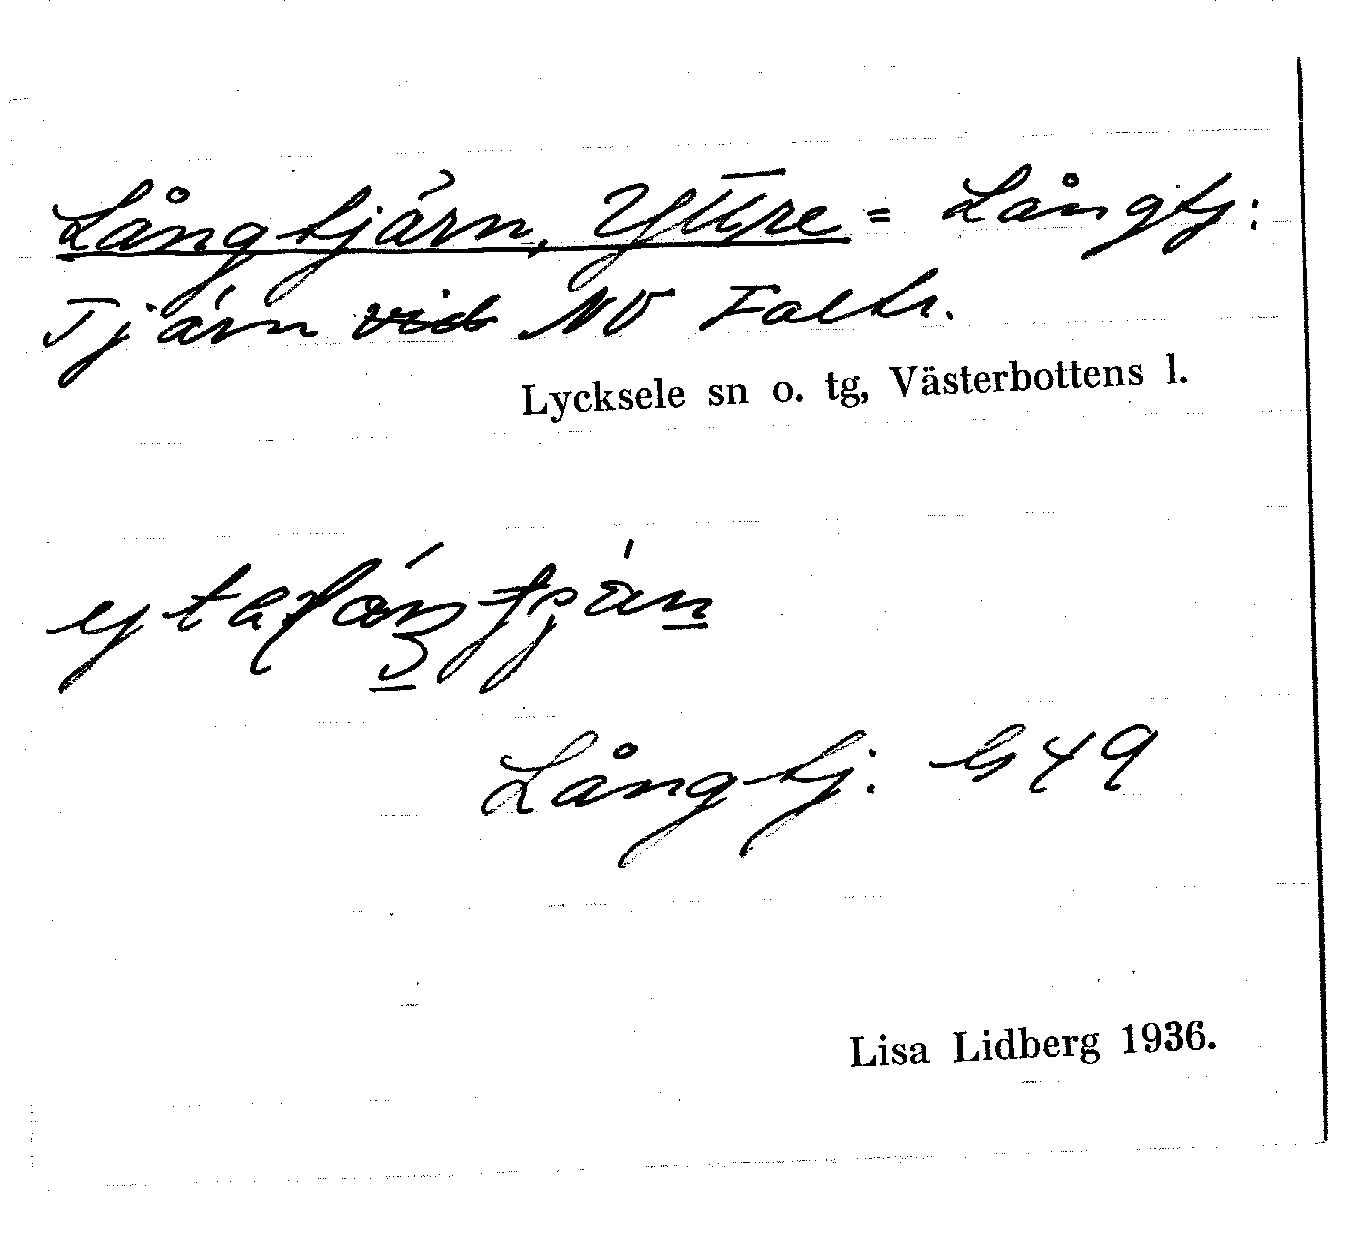 Långtjärn, Yttre = Långtj:
Tjärn vid NV Faltr.
Lycksele sn o. tg, Västerbottens l.
Långtj. G 49
Lisa Lidberg 1936.